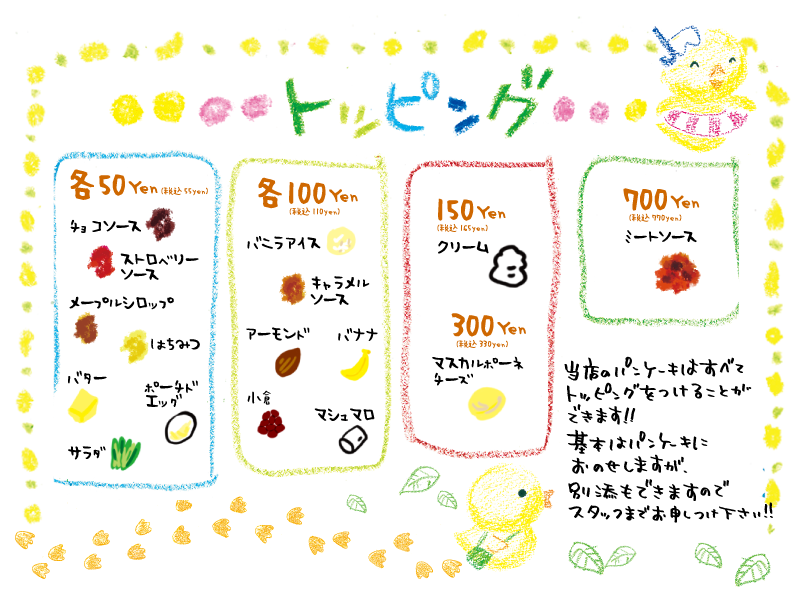 トッピング
各50Yen(税込55yen)
チョコソース
ストロベリー
ソース
メープルシロップ
はちみつ
バター
ポーチド
エッグ
サラダ
各100Yen
(税込110yen)
バニラアイス
キャラメル
ソース
アーモンド
バナナ
小倉
マシュマロ
150Yen
(税込165yen)
クリーム
300Yen
(税込330yen)
マスカルポーネ
チーズ
700Yen
(税込770yen)
ミートソース
当店のパンケーキはすべて
トッピングをつけることが
できます!!
基本はパンケーキに
おのせしますが、
別添もできますので
スタッフまでお申しつけ下さい!!